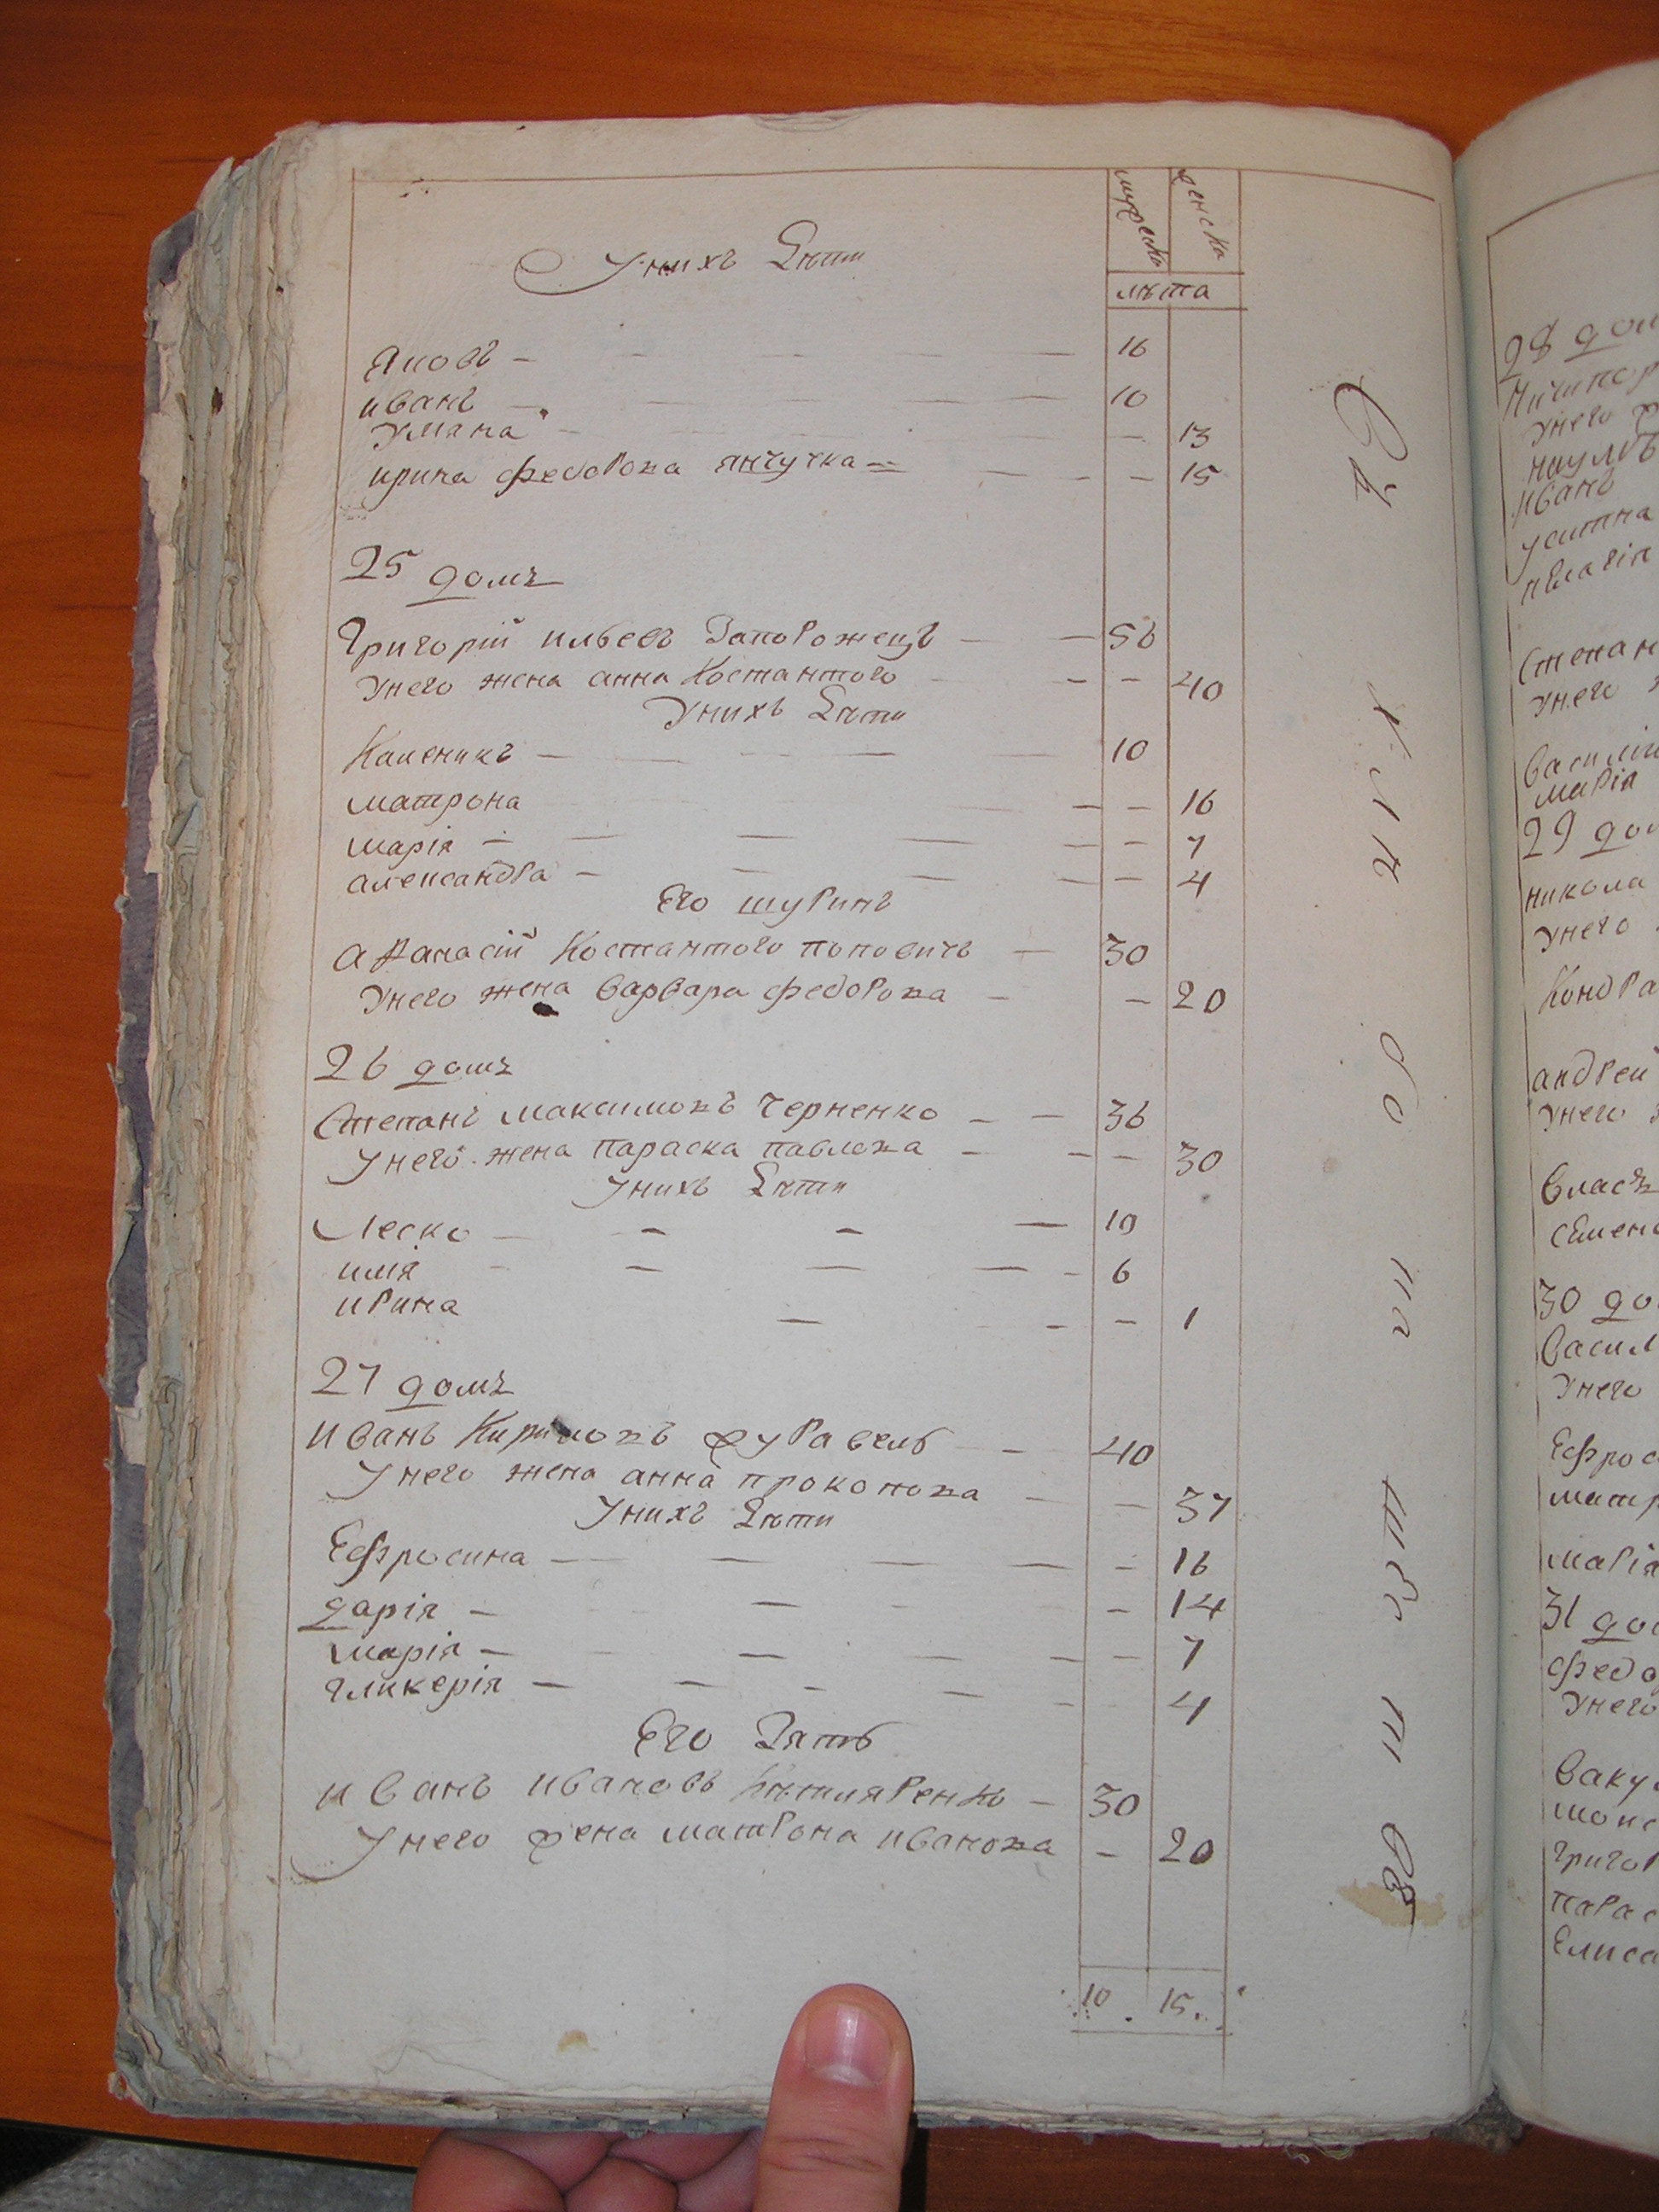 мужеска женска
Унихъ Дѣти
лѣта
Яковъ — 16
иванъ — 10
Уляна — — 13
ирина федорова — — 15
25 домъ
Григорій ильевъ Запорожецъ — — 56
Унего жена анна Костантого — — 40
Унихъ Дѣти
Каленикъ — 10
матрона — — 16
марія — — 7
александра — — 4
Его шуринъ
афанасій Костантого поповичъ — 30
Унего жена варвара федорова — — 20
26 домъ
Степанъ максимовъ Черненко — — 36
Унего жена параска павлова — — 30
Унихъ Дѣти
Леско — — — — 10
илія — — — — 6
ирина — — — 1
27 домъ
иванъ Кириловъ журавель — — 40
Унего жена анна прокопова — — 37
Унихъ Дѣти
Ефросина — — — — — 16
дарія — — — 14
марія — — — — — 7
гликерія — — — — 4
Его Зять
иванъ ивановъ — 30
Унего жена матрона иванова — 20
10 . 15 .
28 дом
Унего
иванъ
Степан
Унего
васили
марія
29 дом
никола
Унего
Кондра
андрей
Унего
власъ
Семен
30 до
васил
Унего
Ефрос
матр
марія
31 до
федо
Унего
ваку
Григор
парас
Елиса